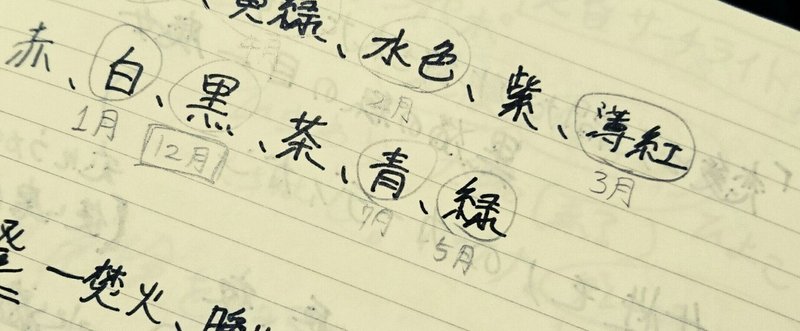 黄緑、水色、紫、薄紅
2月 3月
赤、白、黒、茶、青、緑
1月 12月 7月 5月
一焚火、